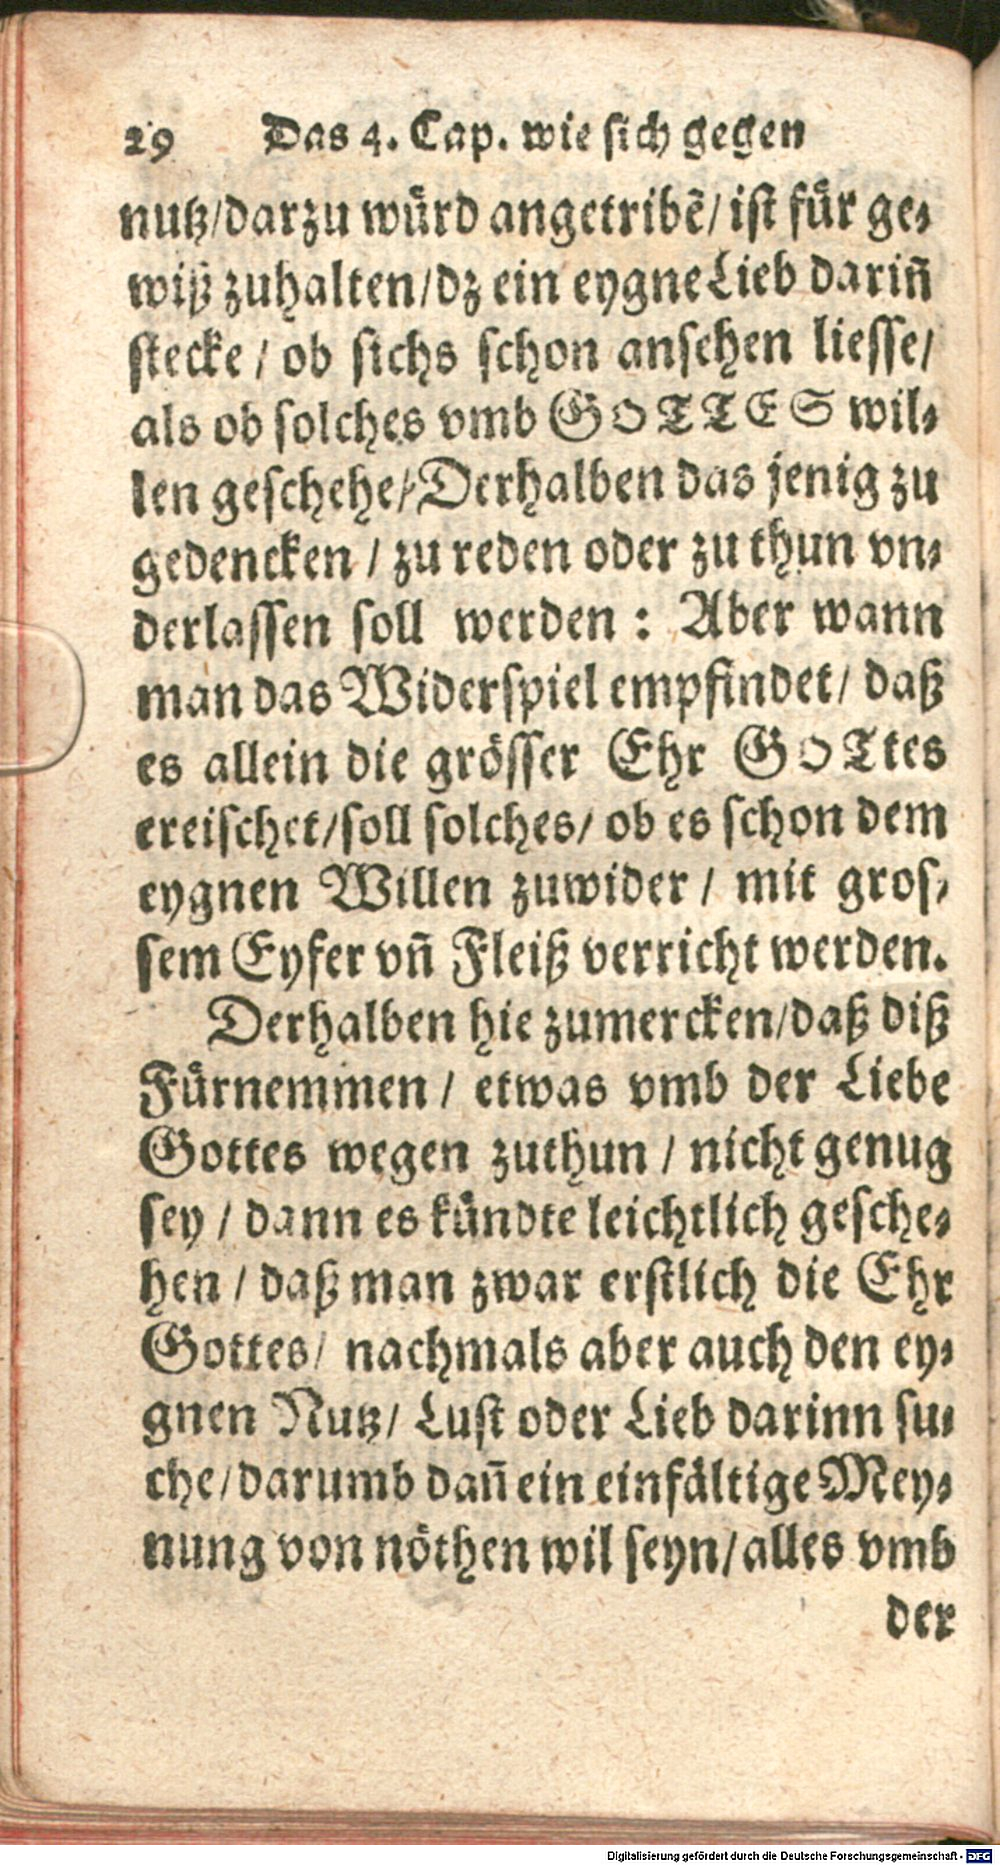 29 Das 4. Cap. wie sich gegen
nutz/darzu würd angetribẽ/ist für ge-
wiß zuhalten/dz ein eygne Lieb dariñ
stecke / ob sichs schon ansehen liesse/
als ob solches vmb GOTTES wil-
len geschehe/Derhalben das jenig zu
gedencken / zu reden oder zu thun vn-
derlassen soll werden : Aber wann
man das Widerspiel empfindet/ daß
es allein die grösser Ehr GOTtes
ereischet/soll solches/ ob es schon dem
eygnen Willen zuwider / mit gros-
sem Eyfer vñ Fleiß verricht werden.
Derhalben hie zumercken/daß diß
Fürnemmen / etwas vmb der Liebe
Gottes wegen zuthun / nicht genug
sey / dann es kündte leichtlich gesche-
hen / daß man zwar erstlich die Ehr
Gottes/ nachmals aber auch den ey-
gnen Nutz/ Lust oder Lieb darinn su-
che/darumb dañ ein einfältige Mey-
nung von nöthen wil seyn/alles vmb
der
Digitalisierung gefördert durch die Deutsche Forschungsgemeinschaft - DFG